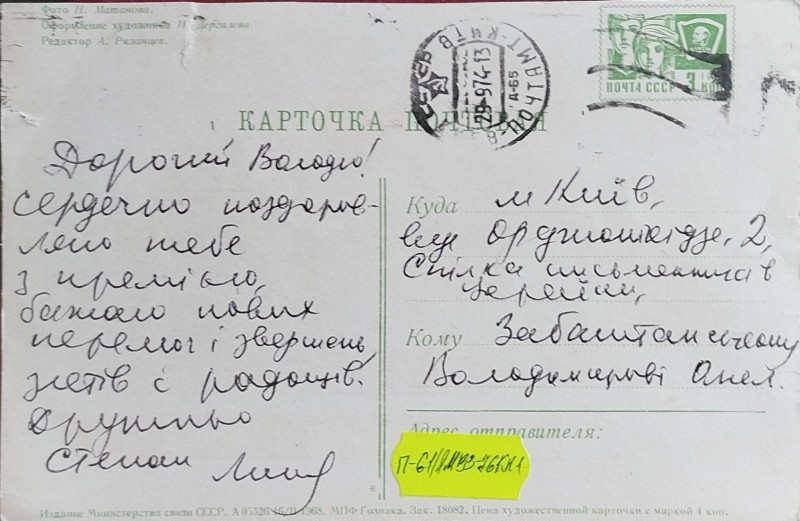 Фото Н. Матанова.
Оформление художника Н. Дергилева
Редактор А. Рязанцев.
ПОЧТАМТ-КИЇВ
29-974-13
А-65
ПОЧТА СССР 3 коп
КАРТОЧКА ПОЧТОВАЯ
Дорогий Володю!
Сердечно поздоров-
ляю тебе
з премією,
бажаю нових
перемог і звершень,
злетів і радощів.
Дружньо
Степан
Куда м Київ,
вул Орджонікідзе, 2,
Спілка письменників
України,
Кому Забаштанському
Володимирові Омел.
Адрес отправителя:
Издание Министерства связи СССР. А 05526 16/II 1968. МПФ Гознака. Зак. 18082. Цена художественной карточки с маркой 4 коп.